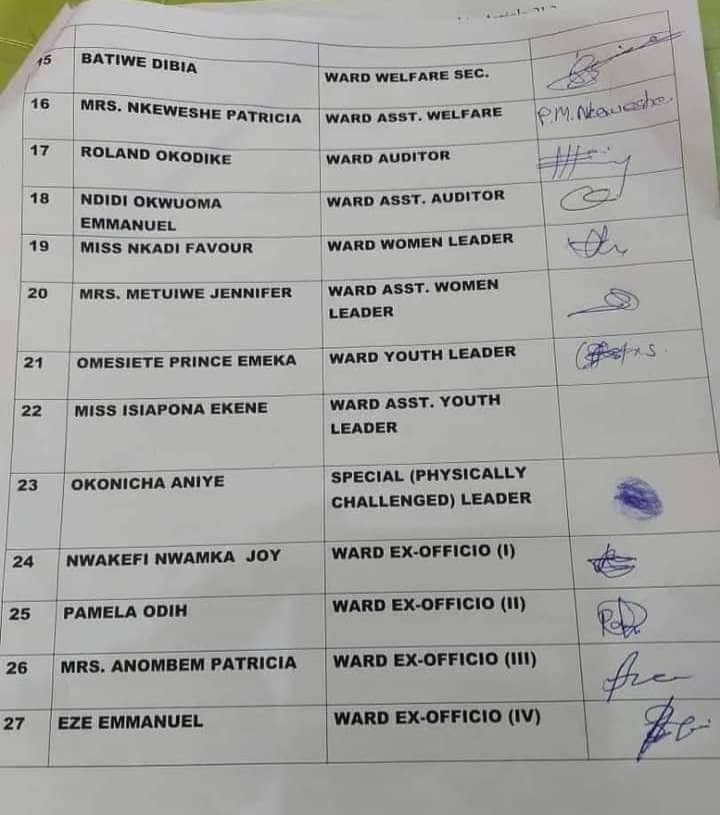 15 BATIWE DIBIA WARD WELFARE SEC.
16 MRS. NKEWESHE PATRICIA WARD ASST. WELFARE P.M.Nkeweshe.
17 ROLAND OKODIKE WARD AUDITOR
18 NDIDI OKWUOMA WARD ASST. AUDITOR
EMMANUEL
19 MISS NKADI FAVOUR WARD WOMEN LEADER
20 MRS. METUIWE JENNIFER WARD ASST. WOMEN
LEADER
21 OMESIETE PRINCE EMEKA WARD YOUTH LEADER
22 MISS ISIAPONA EKENE WARD ASST. YOUTH
LEADER
23 OKONICHA ANIYE SPECIAL (PHYSICALLY
CHALLENGED) LEADER
24 NWAKEFI NWAMKA JOY WARD EX-OFFICIO (I)
25 PAMELA ODIH WARD EX-OFFICIO (II)
26 MRS. ANOMBEM PATRICIA WARD EX-OFFICIO (III)
27 EZE EMMANUEL WARD EX-OFFICIO (IV)